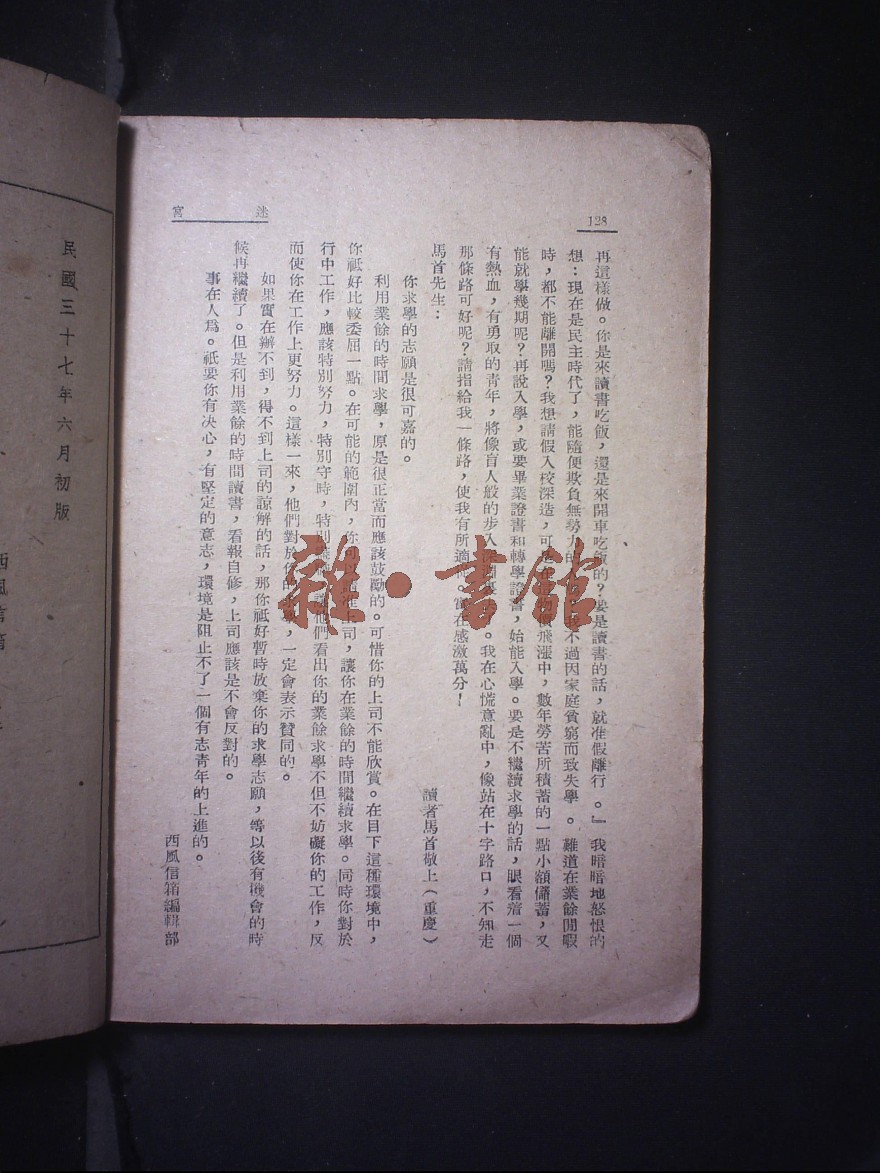 128
迷宮
再這樣做。你是來讀書吃飯,還是來開車吃飯的?要是讀書的話,就准假離行。』我暗暗地怒恨的
想:現在是民主時代了,能隨便欺負無勢力的 不過因家庭貧窮而致失學。難道在業餘閒暇
時,都不能離開嗎?我想請假入校深造,可是在 飛漲中,數年勞苦所積蓄的一點小額儲蓄,又
能就學幾期呢?再說入學,或要畢業證書和轉學證書,始能入學。要是不繼續求學的話,眼看着一個
有熱血,有勇取的青年,將像盲人般的步入 。我在心慌意亂中,像站在十字路口,不知走
那條路可好呢?請指給我一條路,使我有所適 。實在感激萬分!
讀者馬首敬上(重慶)
馬首先生:
你求學的志願是很可嘉的。
利用業餘的時間求學,原是很正當而應該鼓勵的。可惜你的上司不能欣賞。在目下這種環境中,
你祗好比較委屈一點。在可能的範圍內,你可 司,讓你在業餘的時間繼續求學。同時你對於
行中工作,應該特別努力,特別守時,特別 他們看出你的業餘求學不但不妨礙你的工作,反
而使你在工作上更努力。這樣一來,他們對於你的 ,一定會表示贊同的。
如果實在辦不到,得不到上司的諒解的話,那你祗好暫時放棄你的求學志願,等以後有機會的時
候再繼續了。但是利用業餘的時間讀書,看報自修,上司應該是不會反對的。
事在人爲。祗要你有决心,有堅定的意志,環境是阻止不了一個有志青年的上進的。
西風信箱編輯部
民國三十七年六月初版
西風信箱
雜·書館